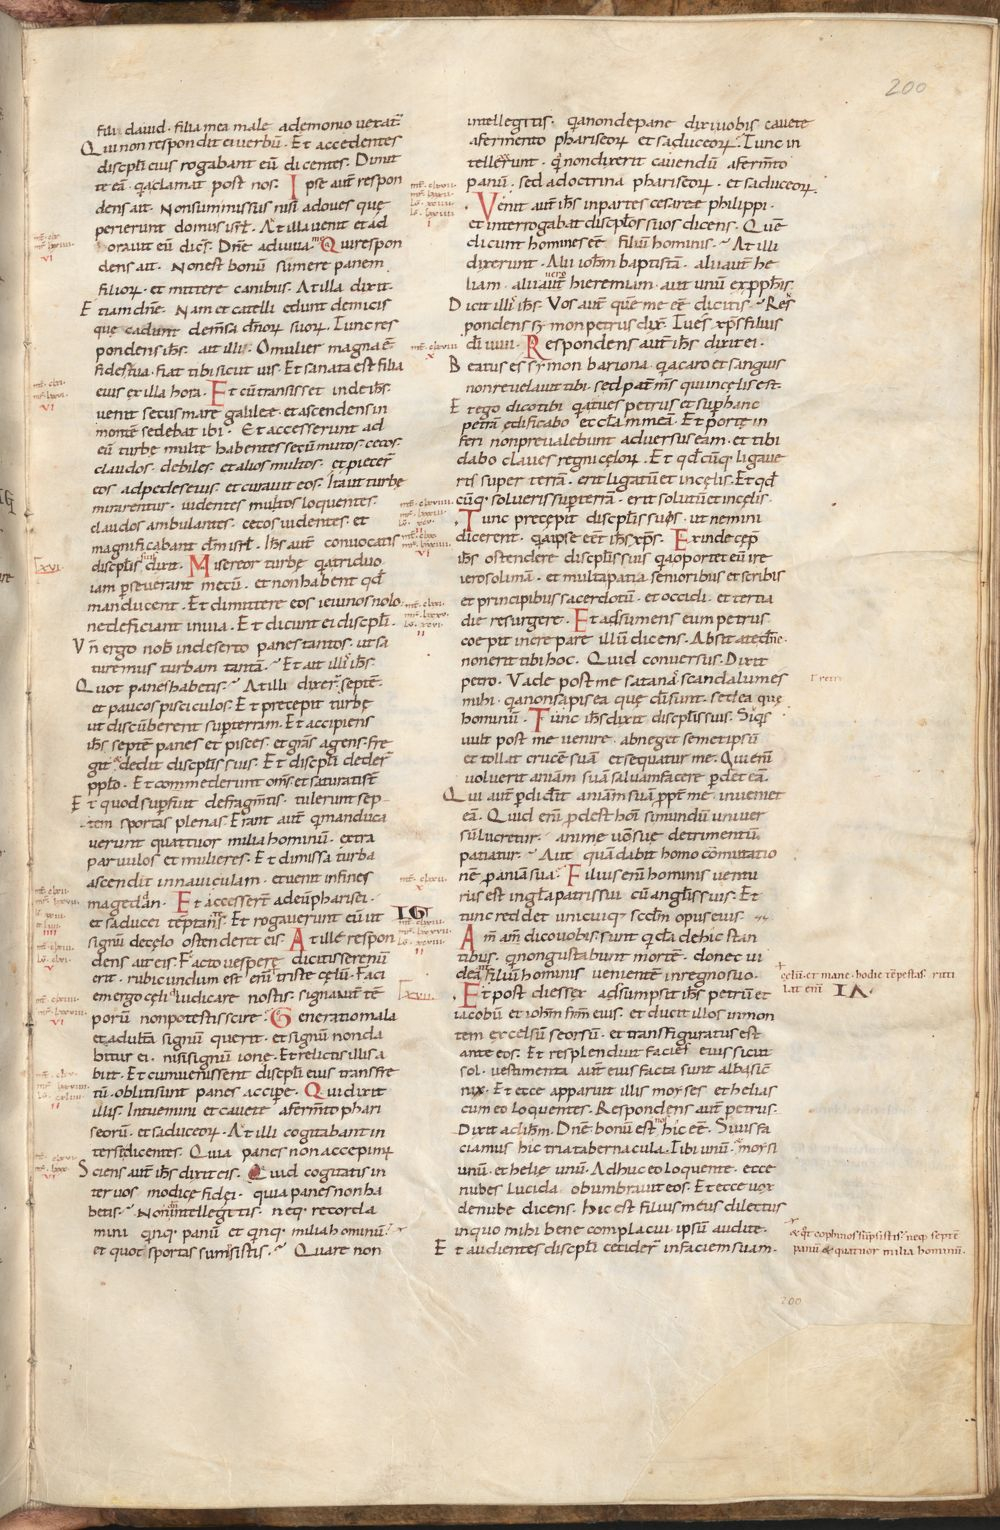 200
fili dauid. filia mea male ademonio uexat᷑
Qui non respondit ei uerbū. Et accedentes
discipl̄i eius rogabant eū dicentes. Dimit
te eā. q̄a clamat post nos. Ipse aut̄ respon
dens ait. Non sum missus nisi ad oues quę
perierunt domus isr̄l. At illa uenit et ad
orauit eū dic̄s. Dn̄e adiuua me. Qui respon
dens ait. Non est bonū sumere panem
filiorꝝ. et mittere canibus. At illa dixit.
Etiam dn̄e. Nam et catelli edunt de micis
quę cadunt de m̄sa dn̄orꝝ suorꝝ. Tunc res
pondens ih̄s. ait illi. O mulier magna ē
fides tua. fiat tibi sicut uis. Et sanata est filia
eius ex illa hora. Et cū transisset inde ih̄s.
uenit secus mare galileę. et ascendens in
montē sedebat ibi. Et accesserunt ad
eū turbę multę habentes secū mutos. cecos.
claudos. debiles. et alios multos. et proiecer̄
eos ad pedes eius. et curauit eos. Ita ut turbę
mirarentur. uidentes multos loquentes.
claudos ambulantes. cecos uidentes. et
magnificabant dm̄ isr̄l. Ih̄s aut̄ conuocatis
discipl̄is suis dixit. Misereor turbę quia triduo
iam perseuerant mecū. et non habent qd̄
manducent. Et dimittere eos ieiunos nolo.
ne deficiant in uia. Et dicunt ei discipl̄i.
Vn̄ ergo nob̄ in deserto panes tantos. ut sa
turemus turbam tantā. Et ait illis ih̄s.
Quot panes habetis. At illi dixer̄. septē.
et paucos pisciculos. Et precepit turbę
ut discūberent sup terram. Et accipiens
ih̄s septē panes et pisces. et gr̄as agens. fre
git. et dedit discipl̄is suis. Et discipl̄i deder̄
pplo. Et commederunt om̄s. et saturati sē
Et quod supfuit de fragm̄tis. tulerunt sep
tem sportas plenas. Erant aut̄ q̄ manduca
uerunt quattuor milia hominū. extra
paruulos et mulieres. Et dimissa turba
ascendit in nauiculam. et uenit in fines
magedan. Et accesser̄t ad eū pharisei.
et saducei temptantes. Et rogauerunt eū ut
signū de cęlo ostenderet eis. At ille respon
dens ait eis. Facto uespere dicitis serenū
erit. rubicundum est eni᷑ triste cęlū. Faci
em ergo cęli iudicare nostis. signa aut̄ tē
porū non potestis scire. Generatio mala
et adultā signū querit. et signū non da
bitur ei. nisi signū ione. Et relictis illis a
biit. Et cum uenissent discipl̄i eius trans fre
tū. obliti sunt panes accipe. Qui dixit
illis. Intuemini et cauete a ferm̄to phari
seorū. et saduceorꝝ. At illi cogitabant in
ter se dicentes. Quia panes non accepimꝰ
Sciens aut̄ ih̄s dixit eis. Quid cogitatis in
ter uos modicę fidei. quia panes non ha
betis. Nondum intellegitis. neqꝫ recorda
mini quinqꝫ panū et quinqꝫ milia hominū.
et quot sportas sumpsistis. Quare non
intellegitis. q̄a non de pane dixi uobis cauete
a fermento phariseorꝝ et saduceorꝝ. Tunc in
tellexerunt. q̄a non dixerit cauendū a ferm̄to
panū. sed a doctrina phariseorꝝ. et saduceorꝝ.
Venit aut̄ ih̄s in partes cesareę philippi.
et interrogabat discipl̄os suos dicens. Quē
dicunt homines ēe filiū hominis. At illi
dixerunt. Alii ioh̄m baptistā. alii aut̄ he
liam. alii uero hieremiam. aut unū ex pph̄is.
Dicit illis ih̄s. Vos aut̄ quē me ēe dicitis. Res
pondens symon petrus dix̄. Tu es xp̄s filius
dī uiui. Respondens aut̄ ih̄s dixit ei.
Beatus es symon bariona. q̄a caro et sanguis
non reuelauit tibi. sed pat̄ m̄s qui in cęlis est.
Et ego dico tibi q̄a tu es petrus et sup hanc
petrā edificabo eccl̄am meā. Et portę in
feri non preualebunt aduersus eam. et tibi
dabo claues regni cęlorꝝ. Et qd̄cūqꝫ ligaue
ris super terrā. erit ligatū et in cęlis. Et qd̄
cūqꝫ solueris sup terrā. erit solutū et in cęlis.
Tunc pręcepit discipl̄is suis. ut nemini
dicerent. q̄a ipse eēt ih̄s xp̄s. Exinde cęp̄
ih̄s ostendere discipl̄is suis q̄a oportet eū ire
ierosolimā. et multa pati a senioribus et scribis
et principibus sacerdotū. et occidi. et tertia
die resurgere. Et adsumens eum petrus
coepit increpare illū dicens. Absit a te dn̄e.
non erit tibi hoc. Qui conuersus. Dixit
petro. Vade post me satana. scandalum es
mihi. q̄a non sapis ea quę dī sunt. sed ea quę
hominū. Tunc ih̄s dixit discipl̄is suis. Siq̄s
uult post me uenire. abneget semet ipsū
et tollat crucē suā et sequatur me. Qui eni᷑
uoluerit animā suā saluam facere. pdet eā.
Qui aut̄ pdiderit animā suā ppt̄ me. inueniet
eā. Quid eni᷑ pdest hoi᷑ si mundū uniuer
sū lucretur. animę uō suę detrimentū
patiatur. Aut quā dabit homo cōmutatio
nē p anima sua. Filius eni᷑ hominis uentu
rus est in gl̄a patris sui cū angl̄is suis. Et
tunc reddet unicuiqꝫ sc̄dm opus eius.
Am̄ am̄ dico uobis. sunt q̄dā de hic stan
tibus. q̄ non gustabunt mortē. donec ui
deant filiū hominis uenientē in regno suo.
Et post dies sex adsumpsit ih̄s petrū et
iacobū et ioh̄m fr̄m eius. et ducit illos in mon
tem excelsū seorsū. et transfiguratus est
ante eos. Et resplenduit facies eius sicut
sol. uestimenta aut̄ eius facta sunt alba sic̄
nix. Et ecce apparuit illis moyses et helias
cum eo loquentes. Respondens aut̄ petrus.
Dixit ad ih̄m. Dn̄e bonū est nos hic ēe. Si uis fa
ciamus hic tria tabernacula. Tibi unū. moysi
unū. et helię unū. Adhuc eo loquente. ecce
nubes lucida obumbrauit eos. Et ecce uox
de nube dicens. Hic est filius meus dilectus
in quo mihi bene complacui ipsū audite.
Et audientes discipl̄i cecider̄ in faciem suam.
xvi.
xvii.
cęlū. et mane. hodie tēpestas. ruti
lat eni᷑
&amp; q̄t cophinos sūpsistis. neqꝫ septē
panū &amp; quatuor milia hominū.
200